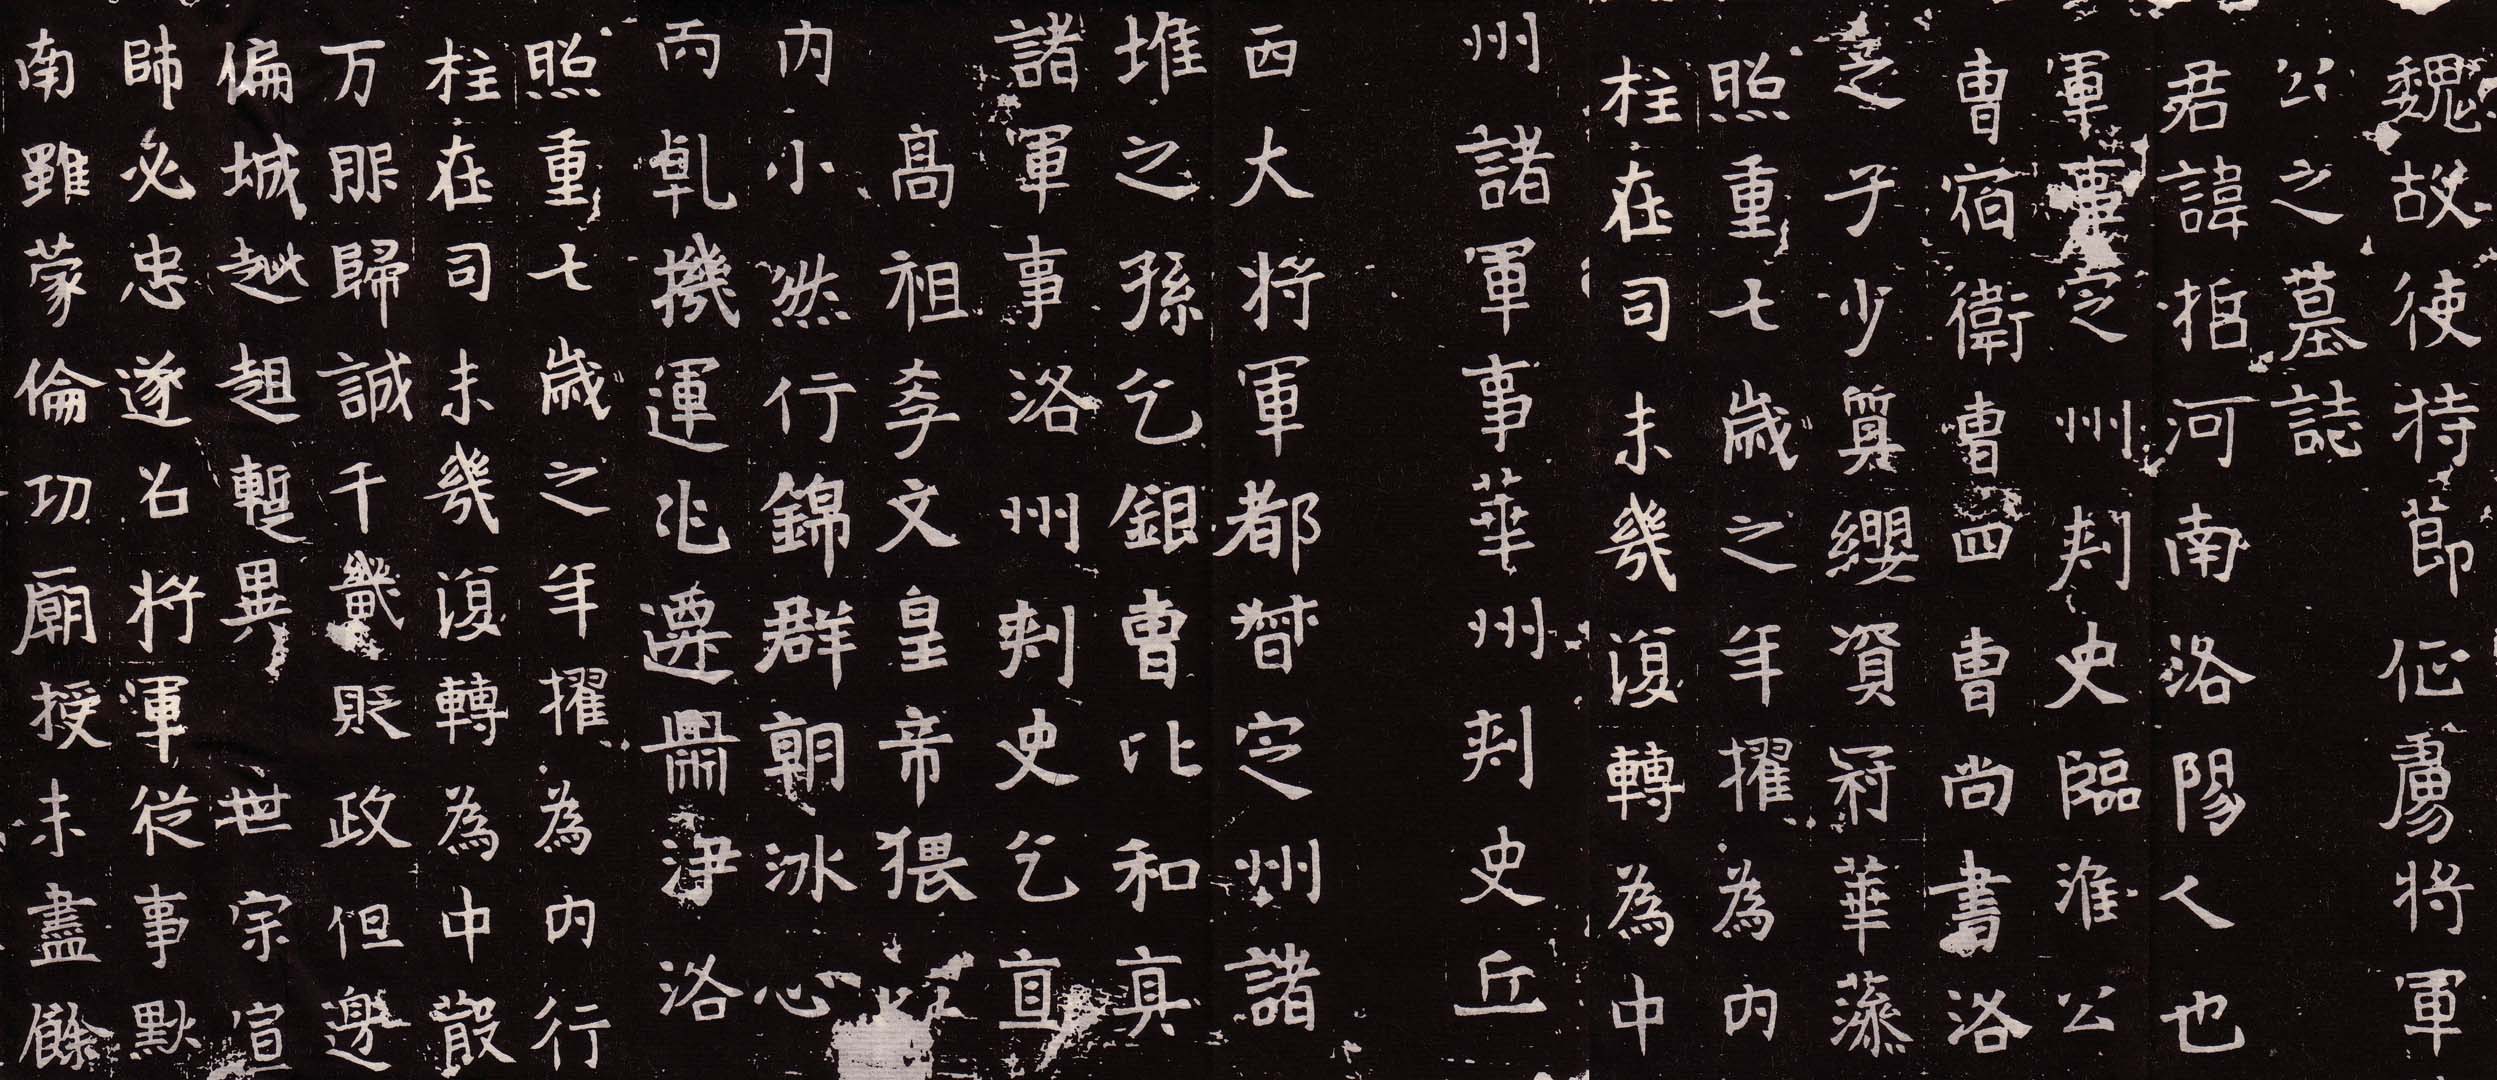 魏故使持節征虜將軍
公之墓誌
君諱哲河南洛陽人也
軍事定州刾史臨淮公
曹宿衛曹四曹尚書洛
之子少質纓資冠華蔭
照重七歲之年擢為内
柱在司未幾復轉為中
州諸軍事華州刾史丘
西大將軍都督定州諸
堆之孫乞銀曹比和真
諸軍事洛州刾史乞直
高祖孝文皇帝猥
内小然行錦群朝冰心
丙軋機運兆遷鼎浄洛
照重七歲之年擢為内行
柱在司未幾復轉為中散
万服歸誠千畿貶政但邊
偏城越趄暫異世宗宣
師必忠遂召將軍從事默
南雖蒙倫功廟授未盡餘